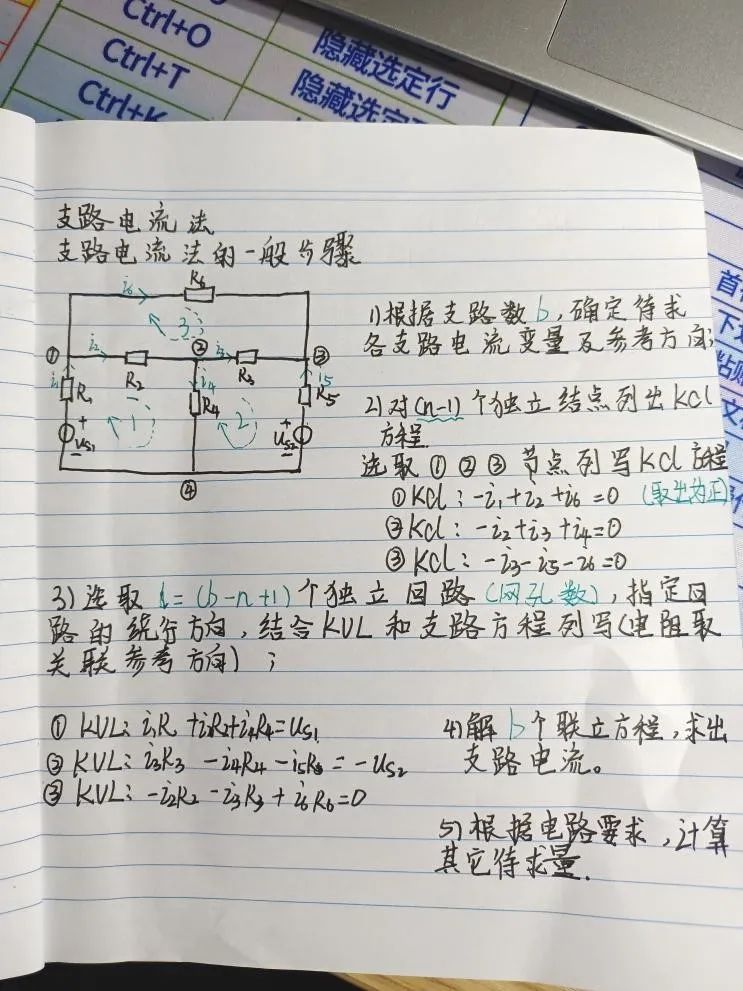 Ctrl+O
隐藏选定行
Ctrl+T
Ctrl+K
支路电流法
支路电流法的一般步骤
i6
R6
3
①
i2
②
i3
③
i1
R1
R2
i4
R4
R3
i5
R5
+
US1
1
2
+
US2
④
1)根据支路数b,确定待求
各支路电流变量及参考方向;
2)对(n-1)个独立结点列出KCl
方程
选取①②③节点列写KCl方程
①KCl: -i1+i2+i6=0 (取出为正)
②KCl: -i2+i3+i4=0
③KCl: -i3-i5-i6=0
3)选取l=(b-n+1)个独立回路(网孔数),指定回
路的绕行方向,结合KVL和支路方程列写(电阻取
关联参考方向);
① KVL: i1R +i2R2+i4R4=US1
② KVL: i3R3 -i4R4 -i5R5 = -US2
③ KVL: -i2R2 -i3R3 + i6R6=0
4)解b个联立方程,求出
支路电流。
5)根据电路要求,计算
其它待求量.